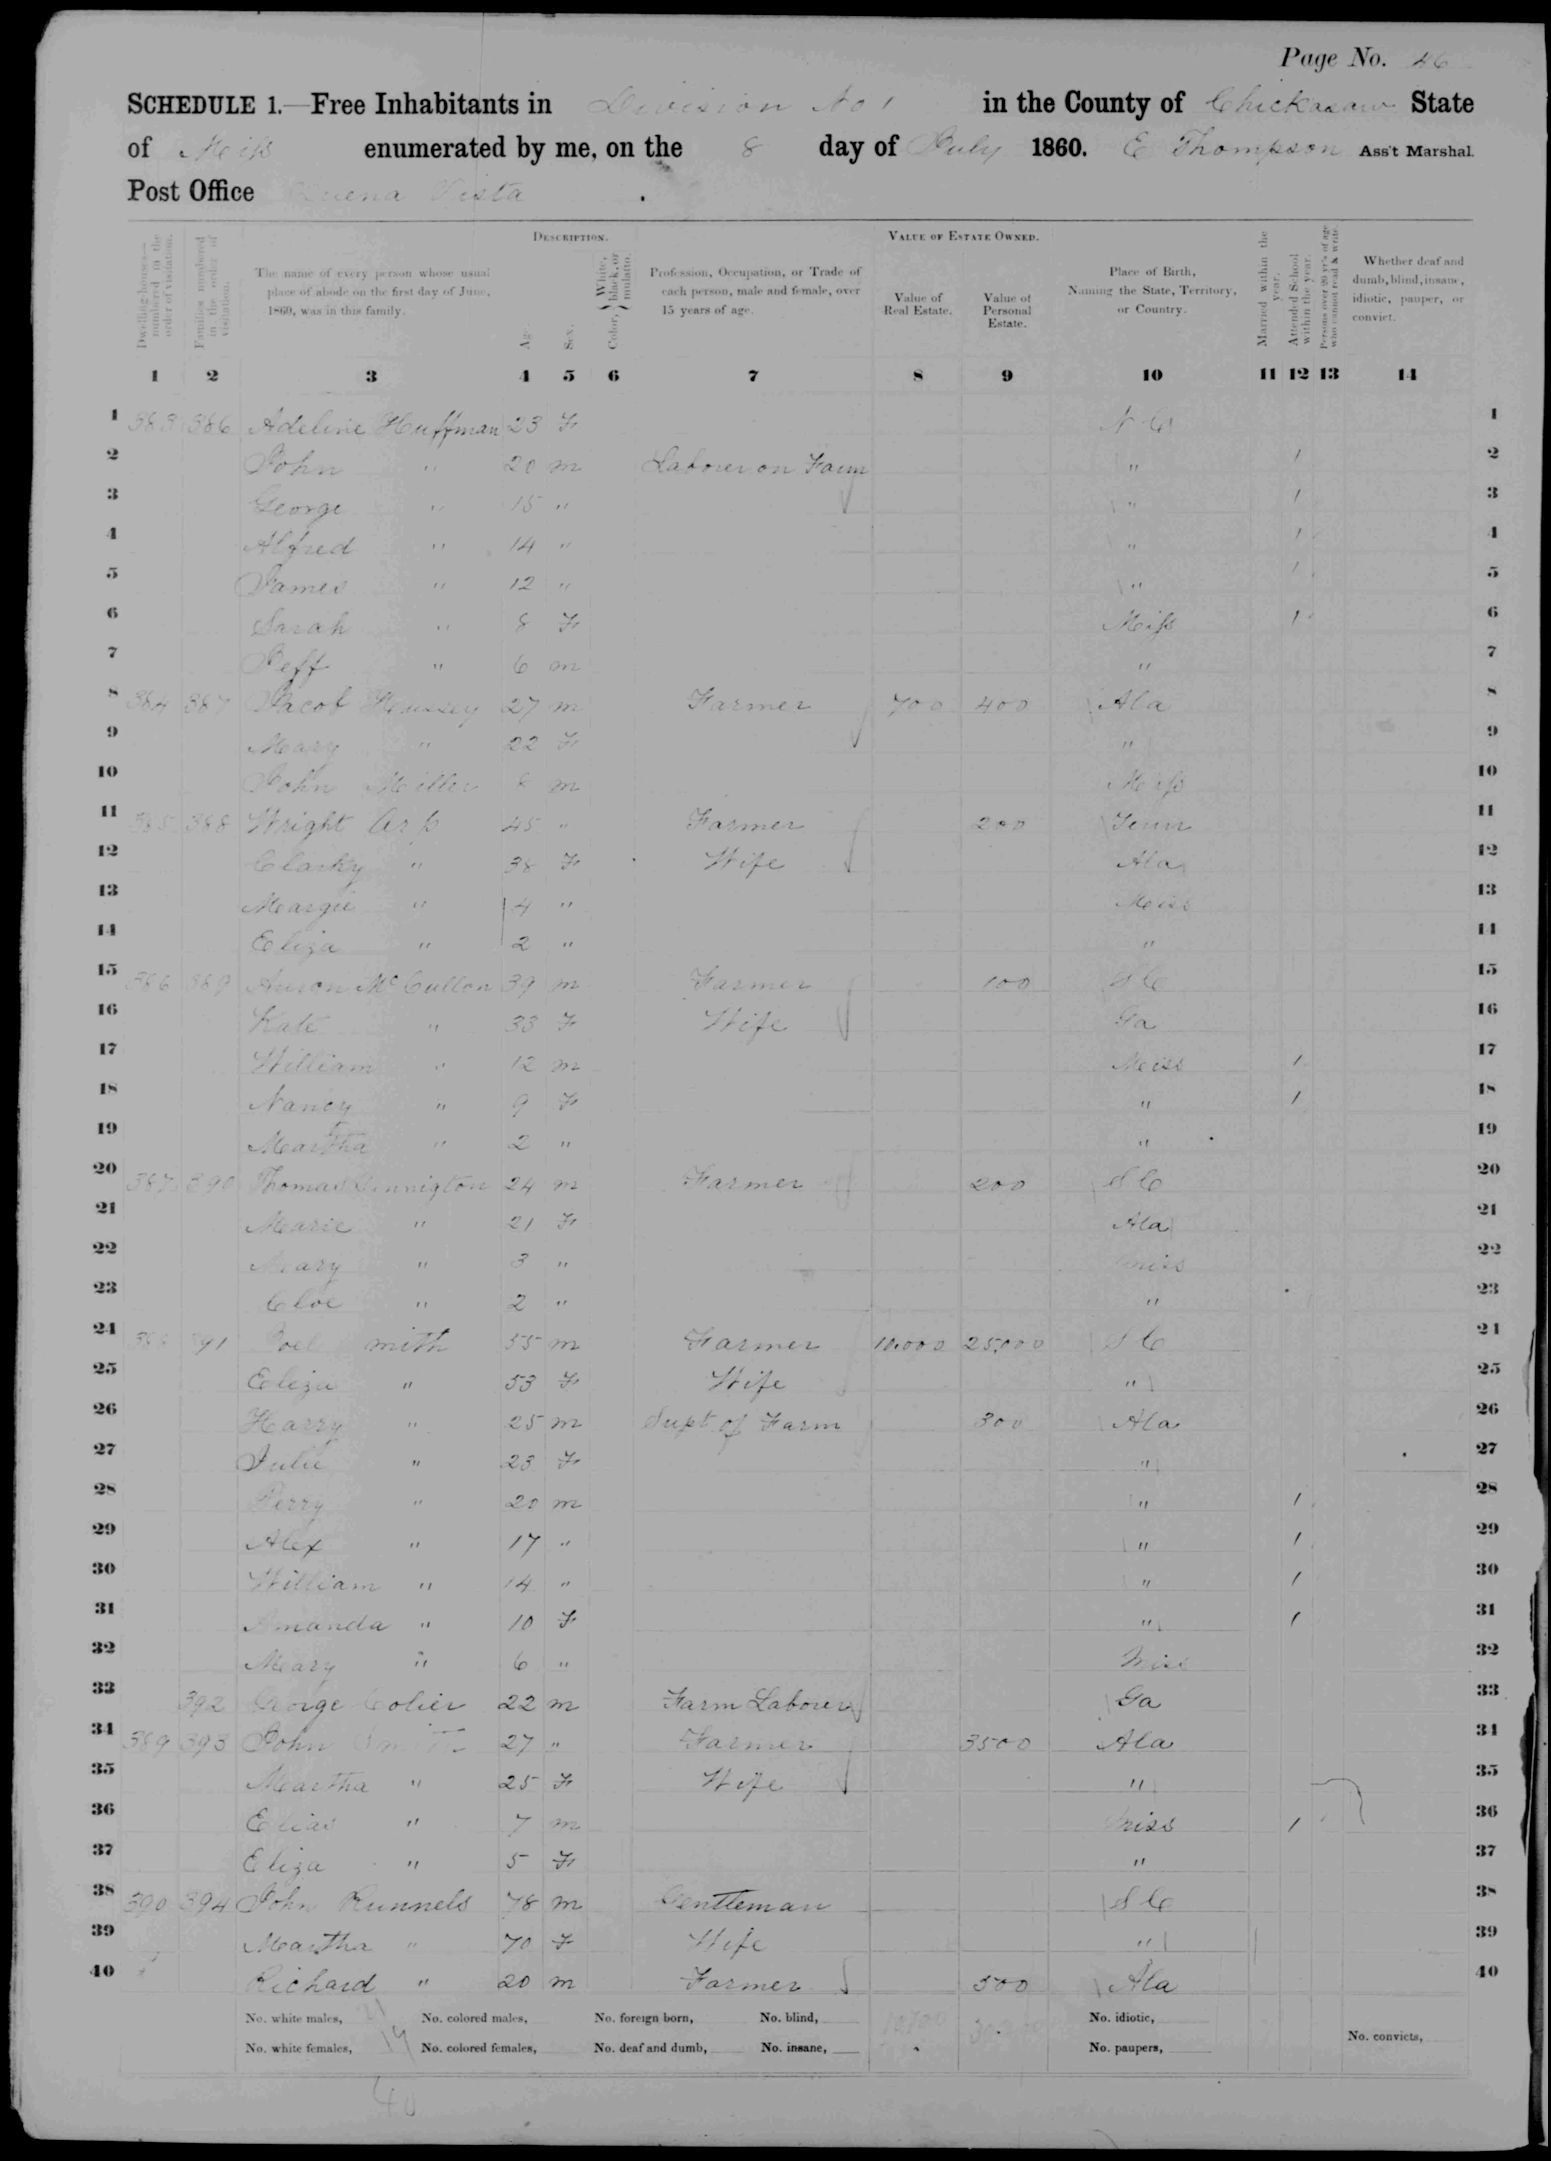 Page No. 46
SCHEDULE 1.—Free Inhabitants in Division No 1 in the County of Chickasaw State
of Miss enumerated by me, on the 8 day of July 1860. E Thompson Ass't Marshal.
Post Office Buena Vista
Dwelling-houses—numbered in the order of visitation.
Families numbered in the order of visitation.
The name of every person whose usual place of abode on the first day of June, 1860, was in this family.
DESCRIPTION.
Age.
Sex.
Color, White, black, or mulatto.
Profession, Occupation, or Trade of each person, male and female, over 15 years of age.
VALUE OF ESTATE OWNED.
Value of Real Estate.
Value of Personal Estate.
Place of Birth, Naming the State, Territory, or Country.
Married within the year.
Attended School within the year.
Persons over 20 yr's of age who cannot read & write.
Whether deaf and dumb, blind, insane, idiotic, pauper, or convict.
1 2 3 4 5 6 7 8 9 10 11 12 13 14
1 383 386 Adeline Huffman 23 F N C 1
2 John " 20 m Laborer on Farm " / 2
3 George " 15 " " / 3
4 Alfred " 14 " " / 4
5 James " 12 " " / 5
6 Sarah " 8 F Miss / 6
7 Jeff " 6 m " 7
8 384 387 Jacob Haussey 27 m Farmer 700 400 Ala 8
9 Mary " 22 F " 9
10 John Miller 8 m Miss 10
11 385 388 Wright Arp 45 " Farmer 200 Tenn 11
12 Clarky " 38 F Wife Ala 12
13 Margie " 4 " Miss 13
14 Eliza " 2 " " 14
15 386 389 McCullon 39 m Farmer 100 S C 15
16 Kate " 33 F Wife Ga 16
17 William " 12 m Miss / 17
18 Nancy " 9 F " / 18
19 Martha " 2 " " 19
20 387 390 Thomas 24 m Farmer 200 S C 20
21 Marie " 21 F Ala 21
22 Mary " 3 " Miss 22
23 Cloe " 2 " " 23
24 388 391 Joel mith 55 m Farmer 10,000 25,000 S C 24
25 Eliza " 53 F Wife " 25
26 Harry " 25 m Supt of Farm 300 Ala 26
27 Julie " 23 F " 27
28 Perry " 20 m " / 28
29 Alex " 17 " " / 29
30 William " 14 " " / 30
31 Amanda " 10 F " / 31
32 Mary " 6 " Miss 32
33 392 George Colier 22 m Farm Laborer Ga 33
34 389 393 John Smith 27 " Farmer 3500 Ala 34
35 Martha " 25 F Wife " 35
36 Elias " 7 m Miss / 36
37 Eliza " 5 F " 37
38 390 394 John Runnels 78 m Gentleman S C 38
39 Martha " 70 F Wife " 39
40 Richard " 20 m Farmer 500 Ala 40
No. white males, 21 No. colored males, No. foreign born, No. blind, No. idiotic,
No. white females, 19 No. colored females, No. deaf and dumb, No. insane, No. paupers, No. convicts,
40